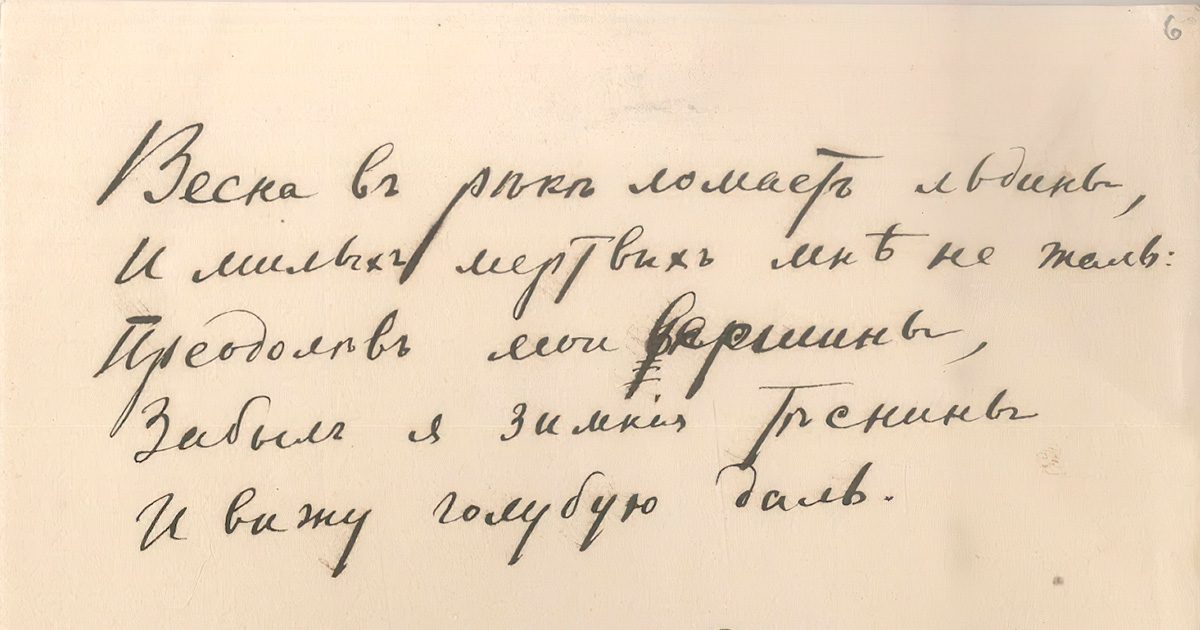 6
Весна въ рѣкѣ ломаетъ льдины,
И милыхъ мертвыхъ мнѣ не жаль:
Преодолѣвъ мои вершины,
Забылъ я зимнія тѣснины
И вижу голубую даль.